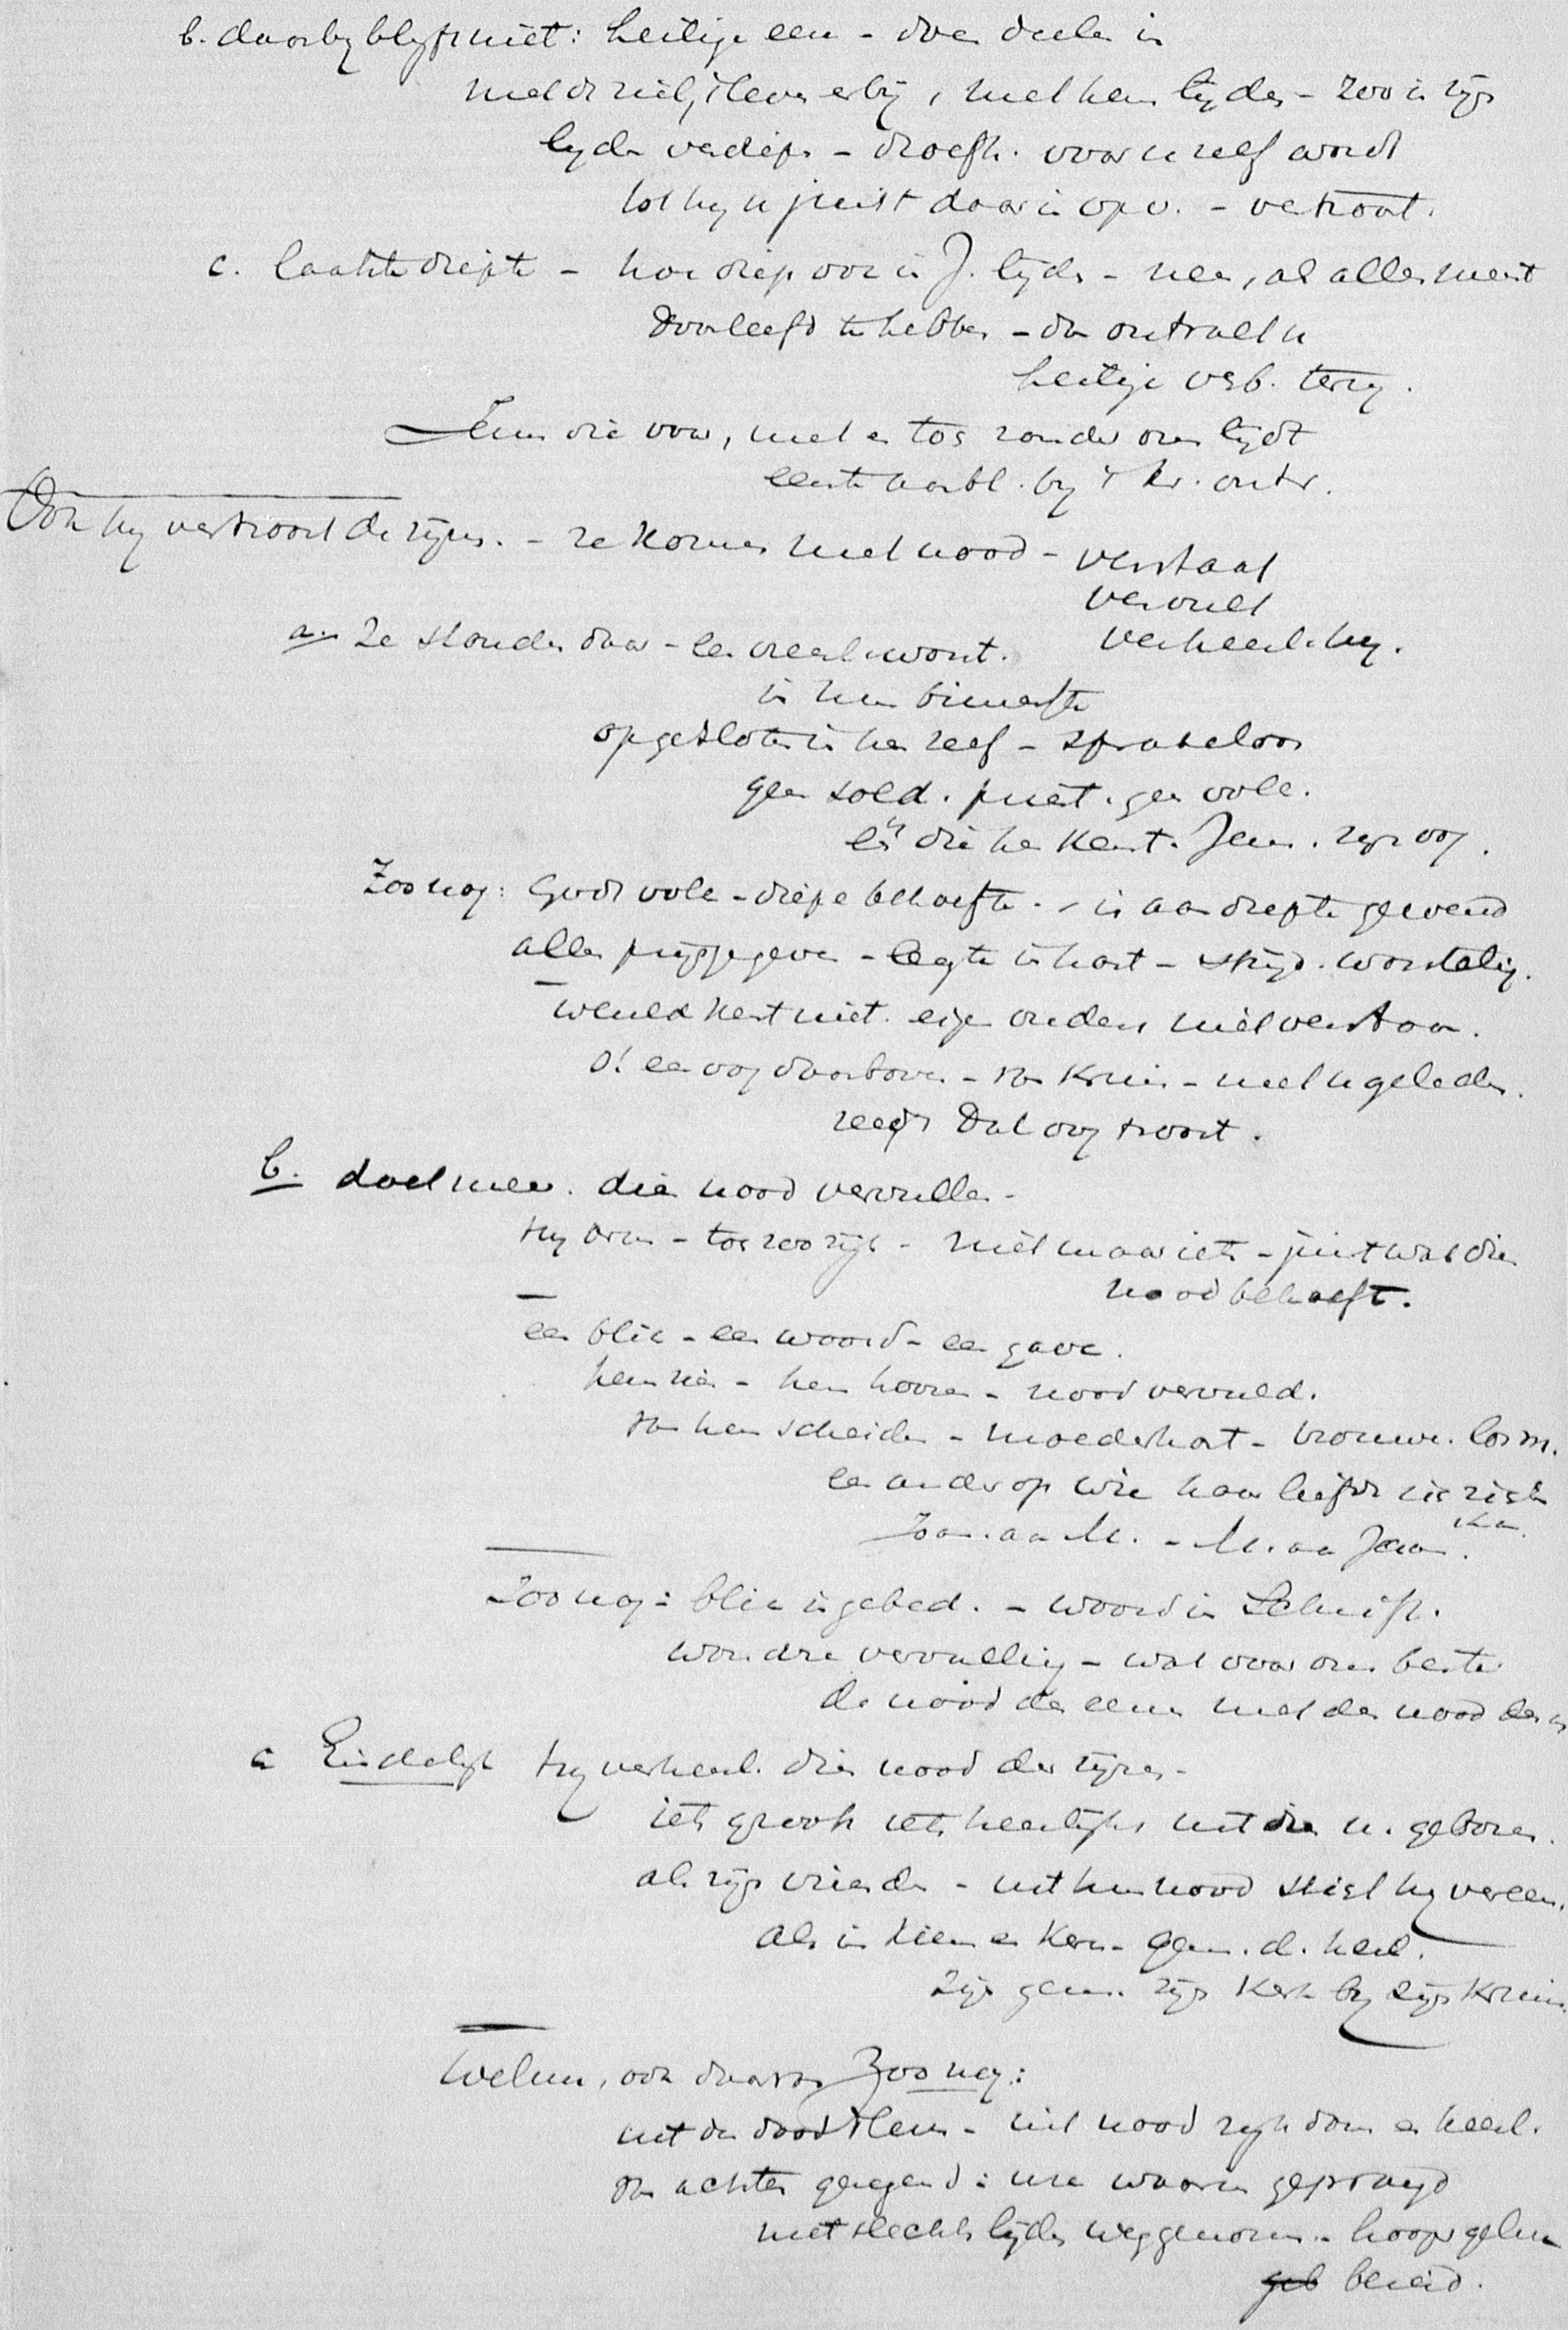 b. daarby blyft niet: heilige een - doen deelen in
met de ziel, 't leven erbij, met hem lyden - zoo in zijn
lyden verdiept - droefh. voor u zelf wordt
tot hy u juist daarin opv. - vertroost.
c. laatste diepte - hoe diep ook in J. lyden - neen, als alles meent
doorleefd te hebben - dan ontvalt u
heilige verb. terug.
Jezus die voor, met en toch zonder ons lydt
eerste aanbl. by 't kr. ontr.
Ook hy vertroost de zynen. - ze komen met nood - verstaat
vervult
verheerl. hy.
a. ze stonden daar - een wereld woest.
in hun binnenste
opgesloten in hen zelf - sprakeloos
geen sold. priest. geen volk.
één die hen kent. Jezus. zyn oog.
Zoo nog: Gods volk - diepe behoefte. - is aan diepte gewend
alles prijsgegeven - leegte in hart - strijd. worsteling.
wereld kent niet. eigen ouders niet verstaan.
o! een oog daarboven - van kruis - met u geleden.
reeds dat oog troost.
b. doet meer. die nood vervullen -
Hy arm - toch zoo rijk - niet maar iets - juist wat die
nood behoeft.
een blik - een woord - een gave.
hem zien - hem hooren - nood vervuld.
van hem scheiden - moederhart - vrouwe. losm.
een ander op wie haar liefde zich richten
kan.
Joan. aan M. - M. aan Joan.
Zoo nog: blik in gebed. - woord in Schrift.
wondre vervulling - wat voor ons beste
de nood des eenen met den nood des an
c Eindelijk Hy verheerl. dien nood der zijnen -
iets groots iets heerlijks uit dien n. geboren.
als zijn vrienden - uit hun nood sticht hy vereen.
als in kiem en kern - gem. d. heil.
Zijn gem. zijn kerk by zijn kruis.
Welnu, ook daarvan Zoo nog:
uit den dood 't leven - uit nood rijkdom en heerl.
van achter gezegend: uw waarom gevraagd
niet slechts lijden weggenomen - hooger geluk
bereid.